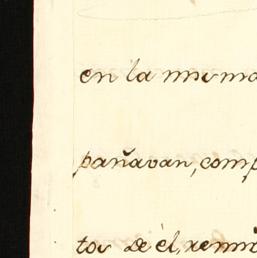 en la misma
pañavan, comp
tos de èl, remi